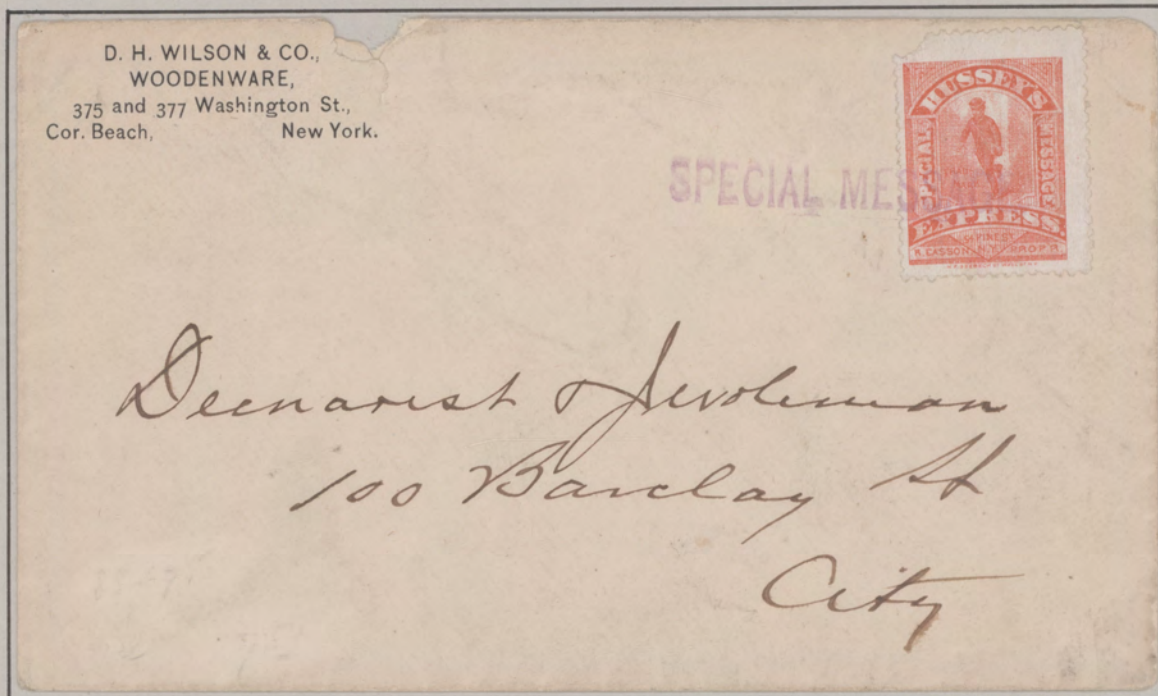 D. H. WILSON & CO.,
WOODENWARE,
375 and 377 Washington St.,
Cor. Beach, New York.
HUSSEY'S
SPECIAL MESSAGE
EXPRESS.
51 PINE ST
R. EASSON, N.Y. PROP'R.
SPECIAL MES
&
100 Barclay St
City